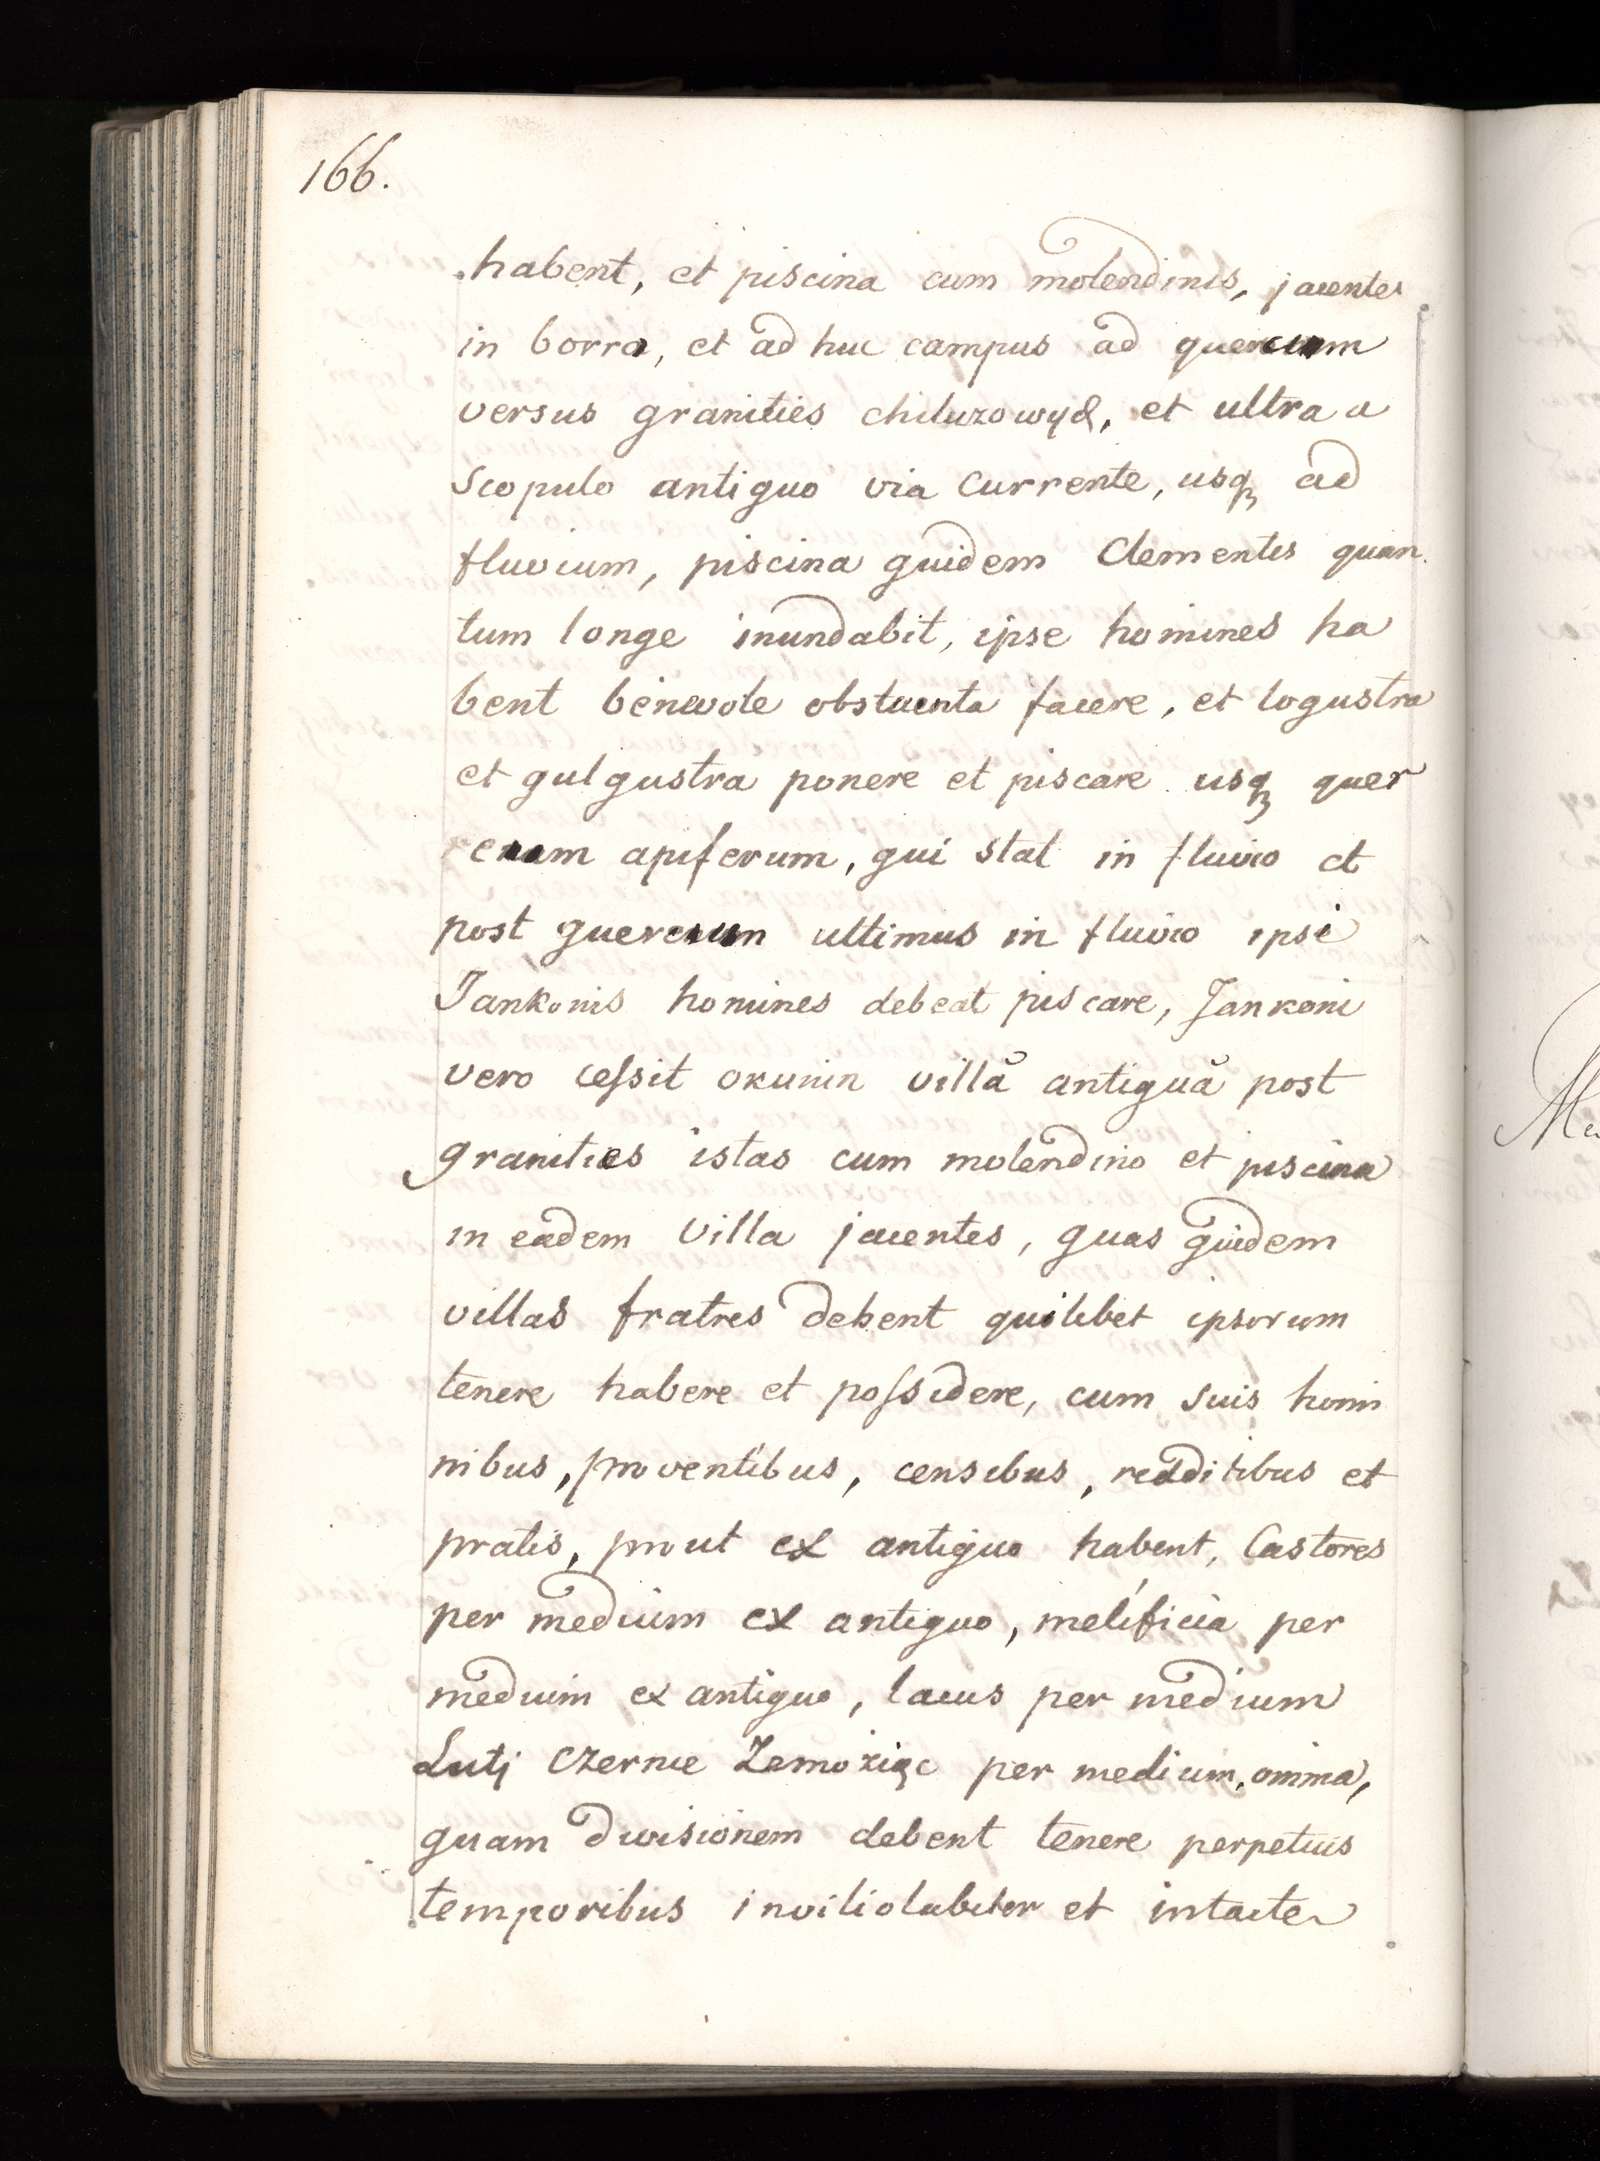 166.
habent, et piscina cum molendinis, jacentes
in borra, et ad huc campus ad quercum
versus granities chiluzowyd, et ultra a
scopulo antiquo via currente, usq ad
fluvium, piscina quidem Clementis quan
tum longe inundabit, ipse homines ha
bent benevole obstacula facere, et logustra
et gulgustra ponere et piscare usq quer
cum apiferum, qui stat in fluvio et
post quercum ultimus in fluvio ipsi
Jankonis homines debeat piscare, Jankoni
vero cessit okunin villã antiquã post
granities istas cum molendino et piscina
in eadem villa jacentes, quas quidem
villas fratres debent quilibet ipsorum
tenere habere et possidere, cum suis homi
nibus, proventibus, censibus, redditibus et
pratis, prout ex antiquo habent, Castores
per medium ex antiquo, melificia per
medium ex antiquo, lacus per medium
Lutj czerne per medium, omnia,
quam divisionem debent tenere perpetuis
temporibus inviliolabiter et intacte